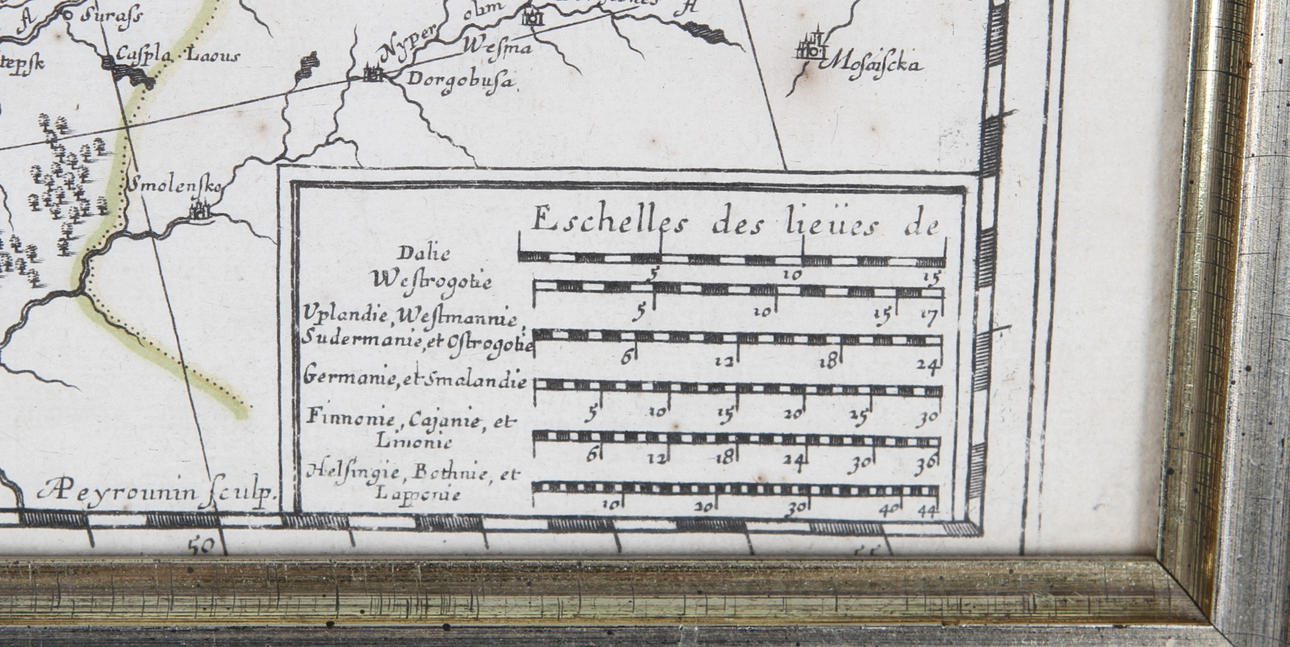 Surass
Caspla Laous
Nyper
Wesma
Dorgobusa.
Mosaiscka
Smolensko
Eschelles des lieües de
Dalie
5 10 15
Westrogotie
5 10 15 17
Uplandie, Westmannie,
Sudermanie, et Ostrogotie
6 12 18 24
Germanie, et Smalandie
5 10 15 20 25 30
Finnonie, Cajanie, et
Liuonie
6 12 18 24 30 36
Helsingie, Bothnie, et
Lapponie
10 20 30 40 44
Æeyrounin sculp.
50